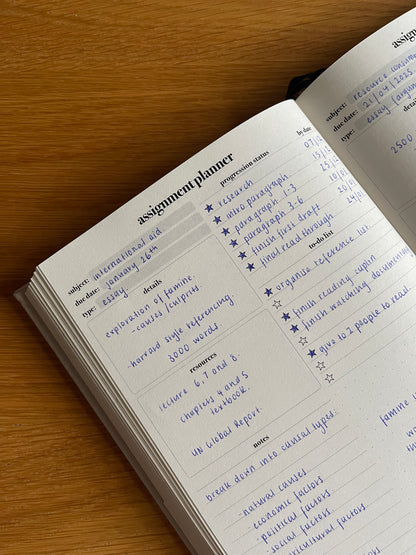 assignment planner
subject: international aid
due date: january 26th
type: essay
details
exploration of famine.
-causes/culprits.
-harvard style referencing.
3000 words.
resources
lecture 6, 7 and 8.
chapters 4 and 5
textbook.
UN Global Report.
progression status
by date
research 07/12
intro paragraph 15/12
paragraph 1-3
paragraph 3-6
finish first draft 20/01
final read through
to-do list
organise reference list.
finish reading
finish watching
give to 2 people to read
notes
break down into causal types:
-natural causes.
-economic factors.
-political factors.
-social factors.
famine
subject: resource
due date: 21/04/2025
type: essay
2500